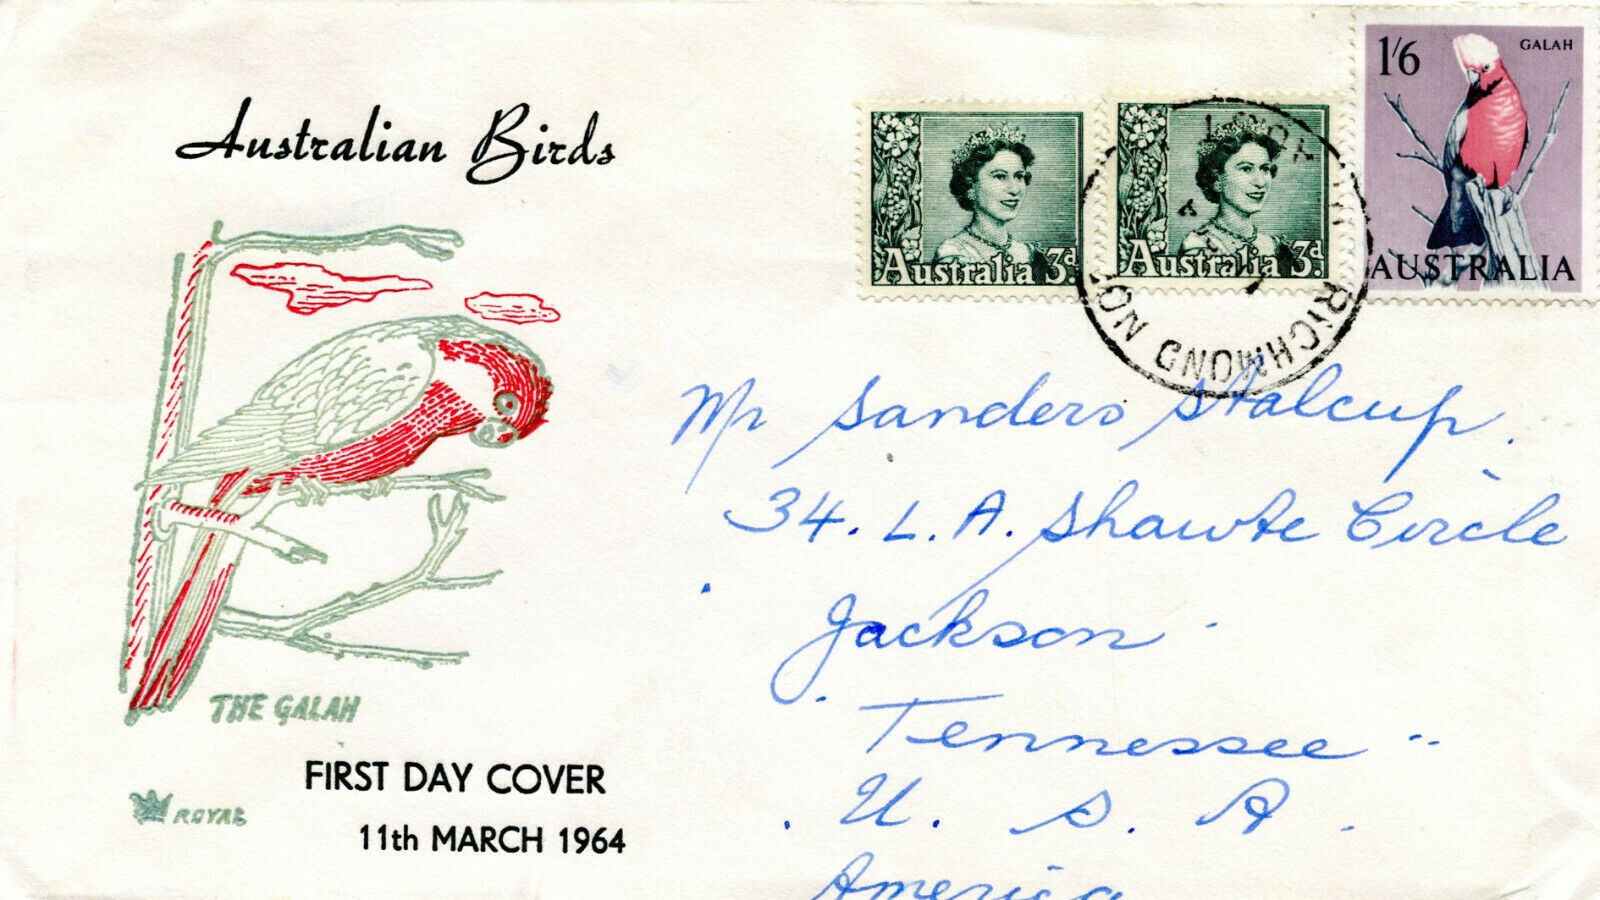 Australian Birds
THE GALAH
FIRST DAY COVER
11th MARCH 1964
ROYAL
Australia 3d.
Australia 3d.
1/6 GALAH
AUSTRALIA
RICHMOND NORTH
Mr Sanders Stalcup.
34. L. A. Shawte Circle
Jackson
Tennessee
U. S. A.
America